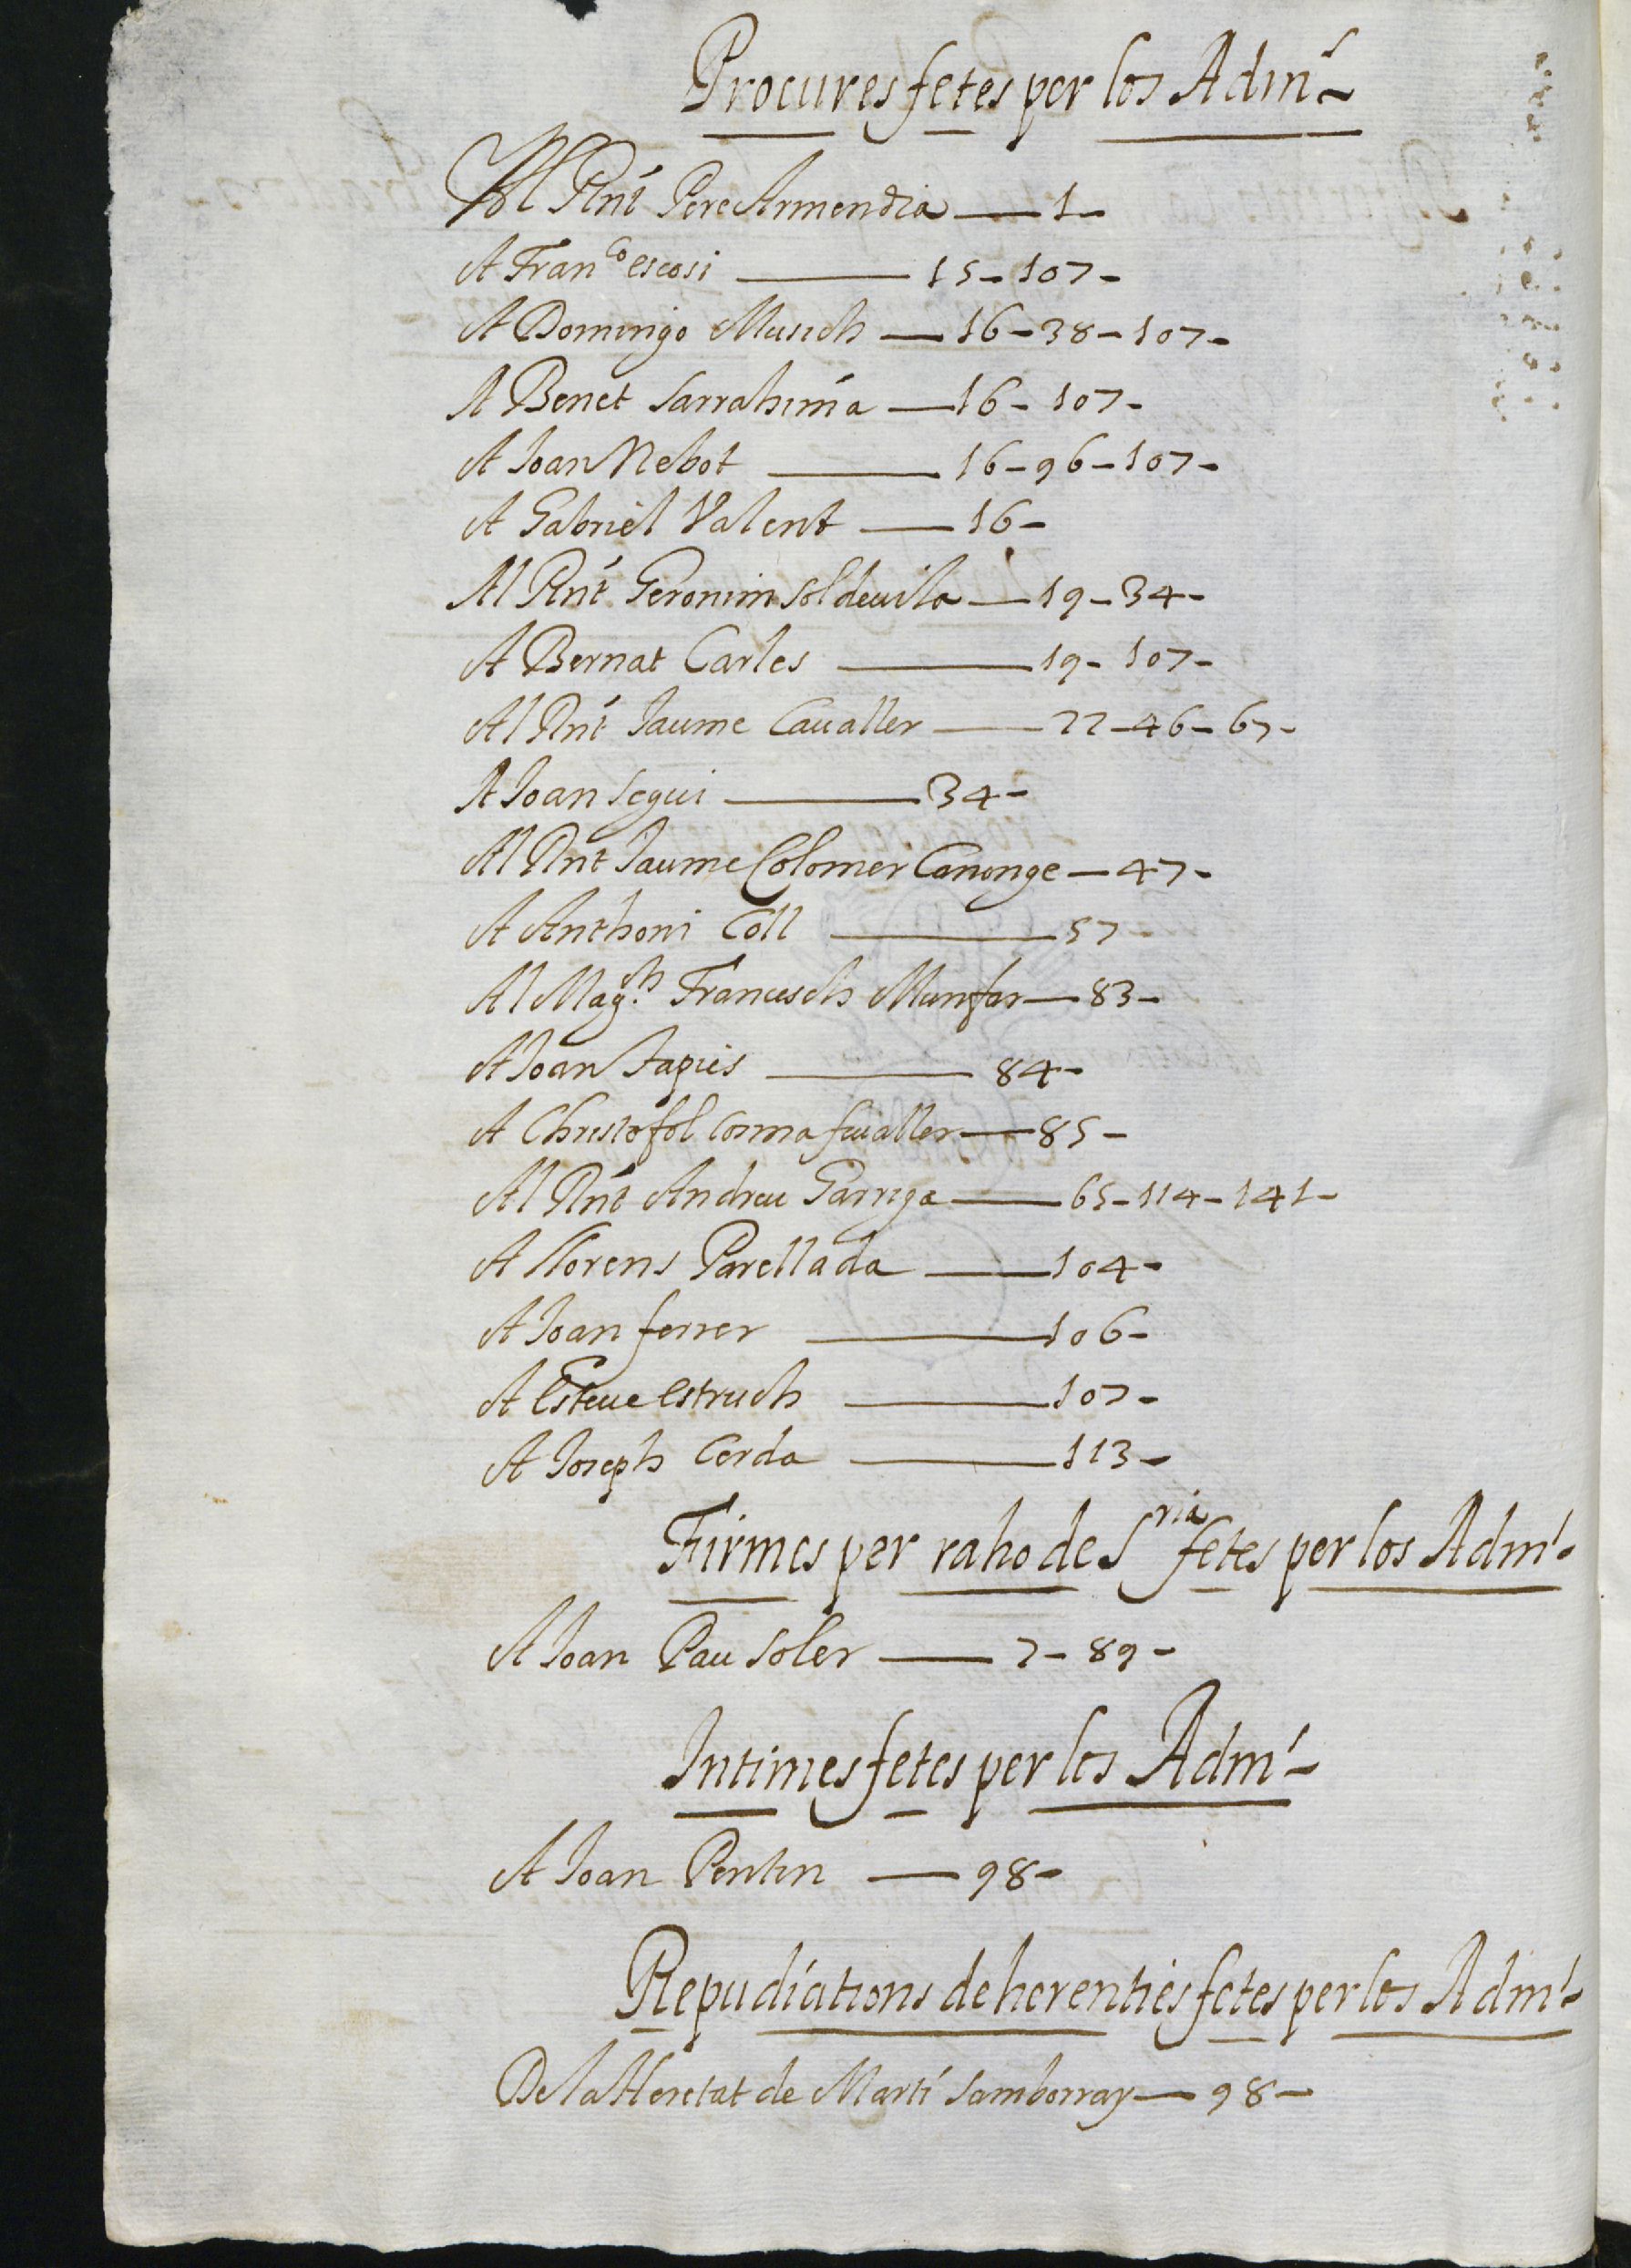 Procures fetes per los Adm.s
Al Rnt Pere Armendia — 1 -
A Franco escosi — 15 - 107 -
A Domingo Musich — 16 - 38 - 107 -
A Benet Sarrahima — 16 - 107 -
A Joan Nebot — 16 - 96 - 107 -
A Gabriel Valent — 16 -
Al Rnt Geronim Soldevila — 19 - 34 -
A Bernat Carles — 19 - 107 -
Al Rnt Jaume Cavaller — 22 - 46 - 67 -
A Joan Segui — 34 -
Al Rnt Jaume Colomer Canonge — 47 -
A Anthoni Coll — 57 -
Al Magch Francesch Munfar — 83 -
A Joan Tapies — 84 -
A Christofol Coma — 85 -
Al Rnt Andreu Garriga — 65 - 114 - 141 -
A Llorens Parellada — 104 -
A Joan ferrer — 106 -
A Esteve estruch — 107 -
A Joseph Cerda — 113 -
Firmes per raho de Sria fetes per los Adm.
A Joan Pau Soler — 7 - 89 -
Intimes fetes per los Adm -
A Joan Pentin — 98 -
Repudiations de herenties fetes per los Adm -
De la Heretat de Martí Samborray — 98 -